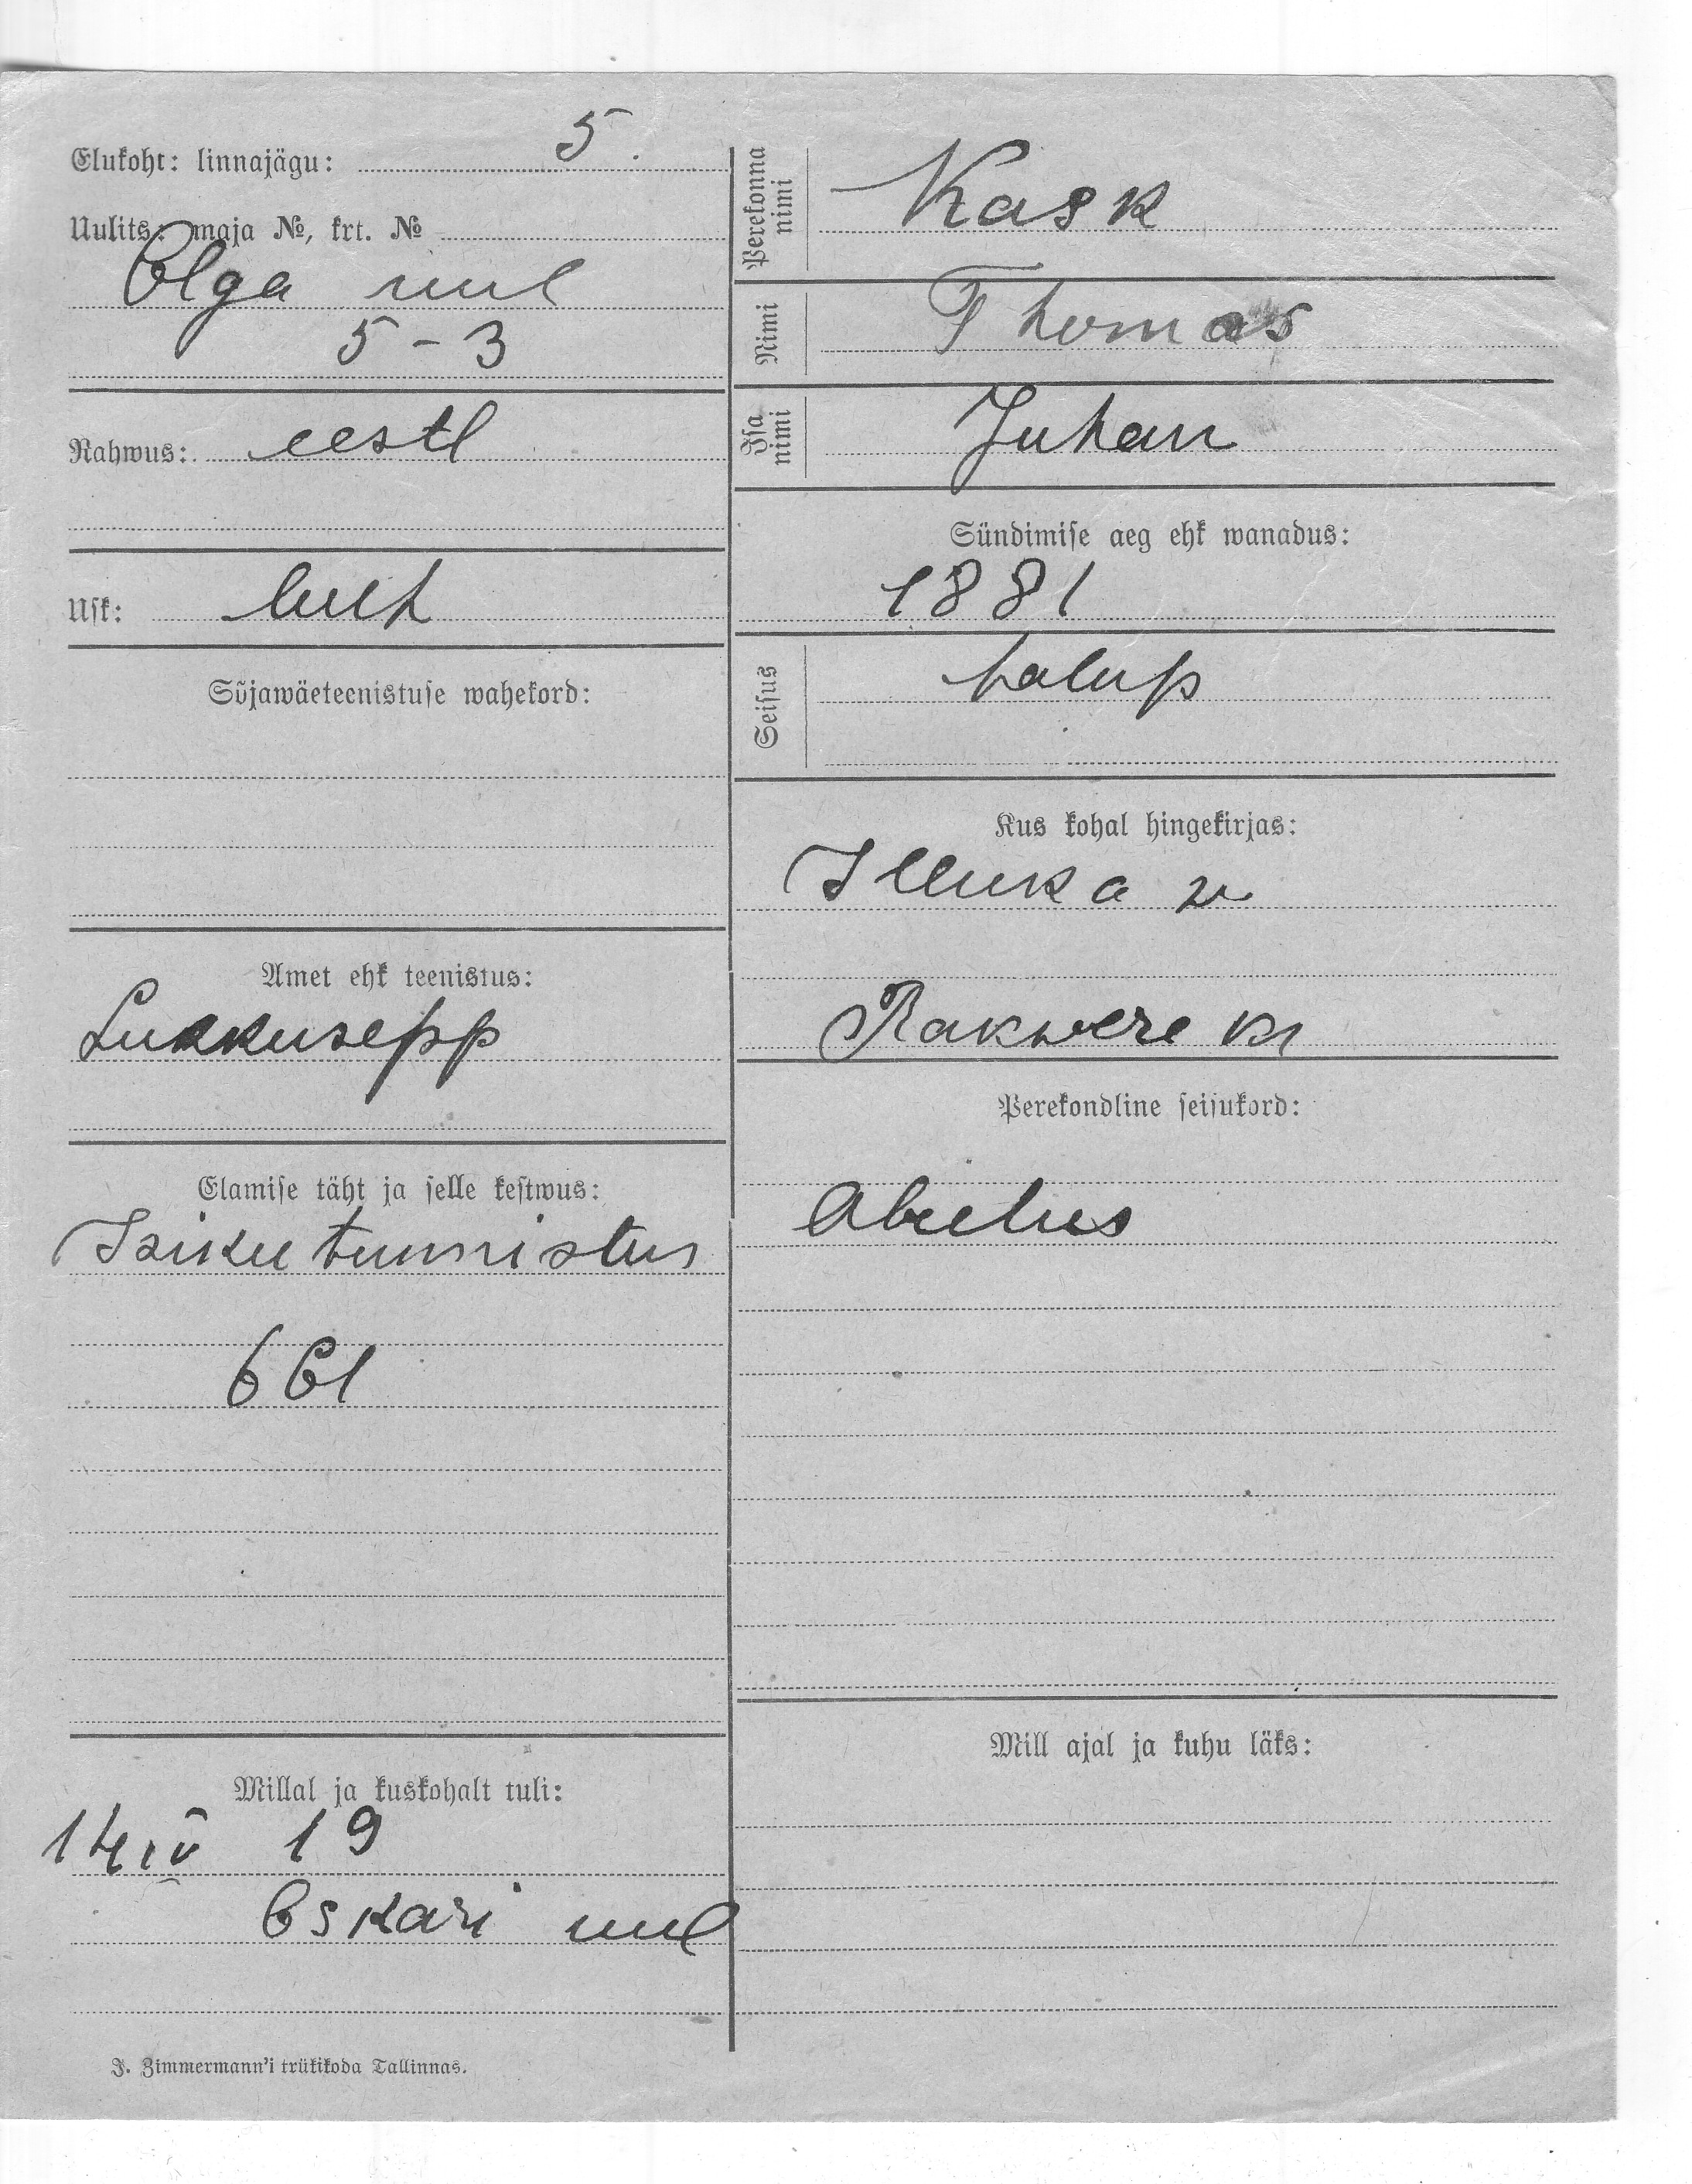 Elukoht: linnajägu: 5.
Uulits: maja №, krt. №
Olga uul
5-3
Rahwus: eestl
Usk: luth
Sõjawäeteenistuse wahekord:
Amet ehk teenistus:
Lukkusepp
Elamise täht ja selle kestwus:
Isiku tunnistus
661
Millal ja kuskohalt tuli:
14 IV 19
Oskari uul
J. Zimmermann'i trükikoda Tallinnas.
Perekonna nimi Kask
Nimi Thomas
Isa nimi Juhan
Sündimise aeg ehk wanadus:
1881
Seisus talup
Kus kohal hingekirjas:
Illuka w
Rakwere kr
Perekondline seisukord:
Abielus
Mill ajal ja kuhu läks: